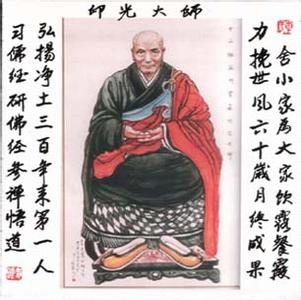 印光大師
舍小家為大家飲露餐霞
力挽世風六十歲月終成果
弘揚净土三百年来第一人
习佛经研佛经参禅悟道